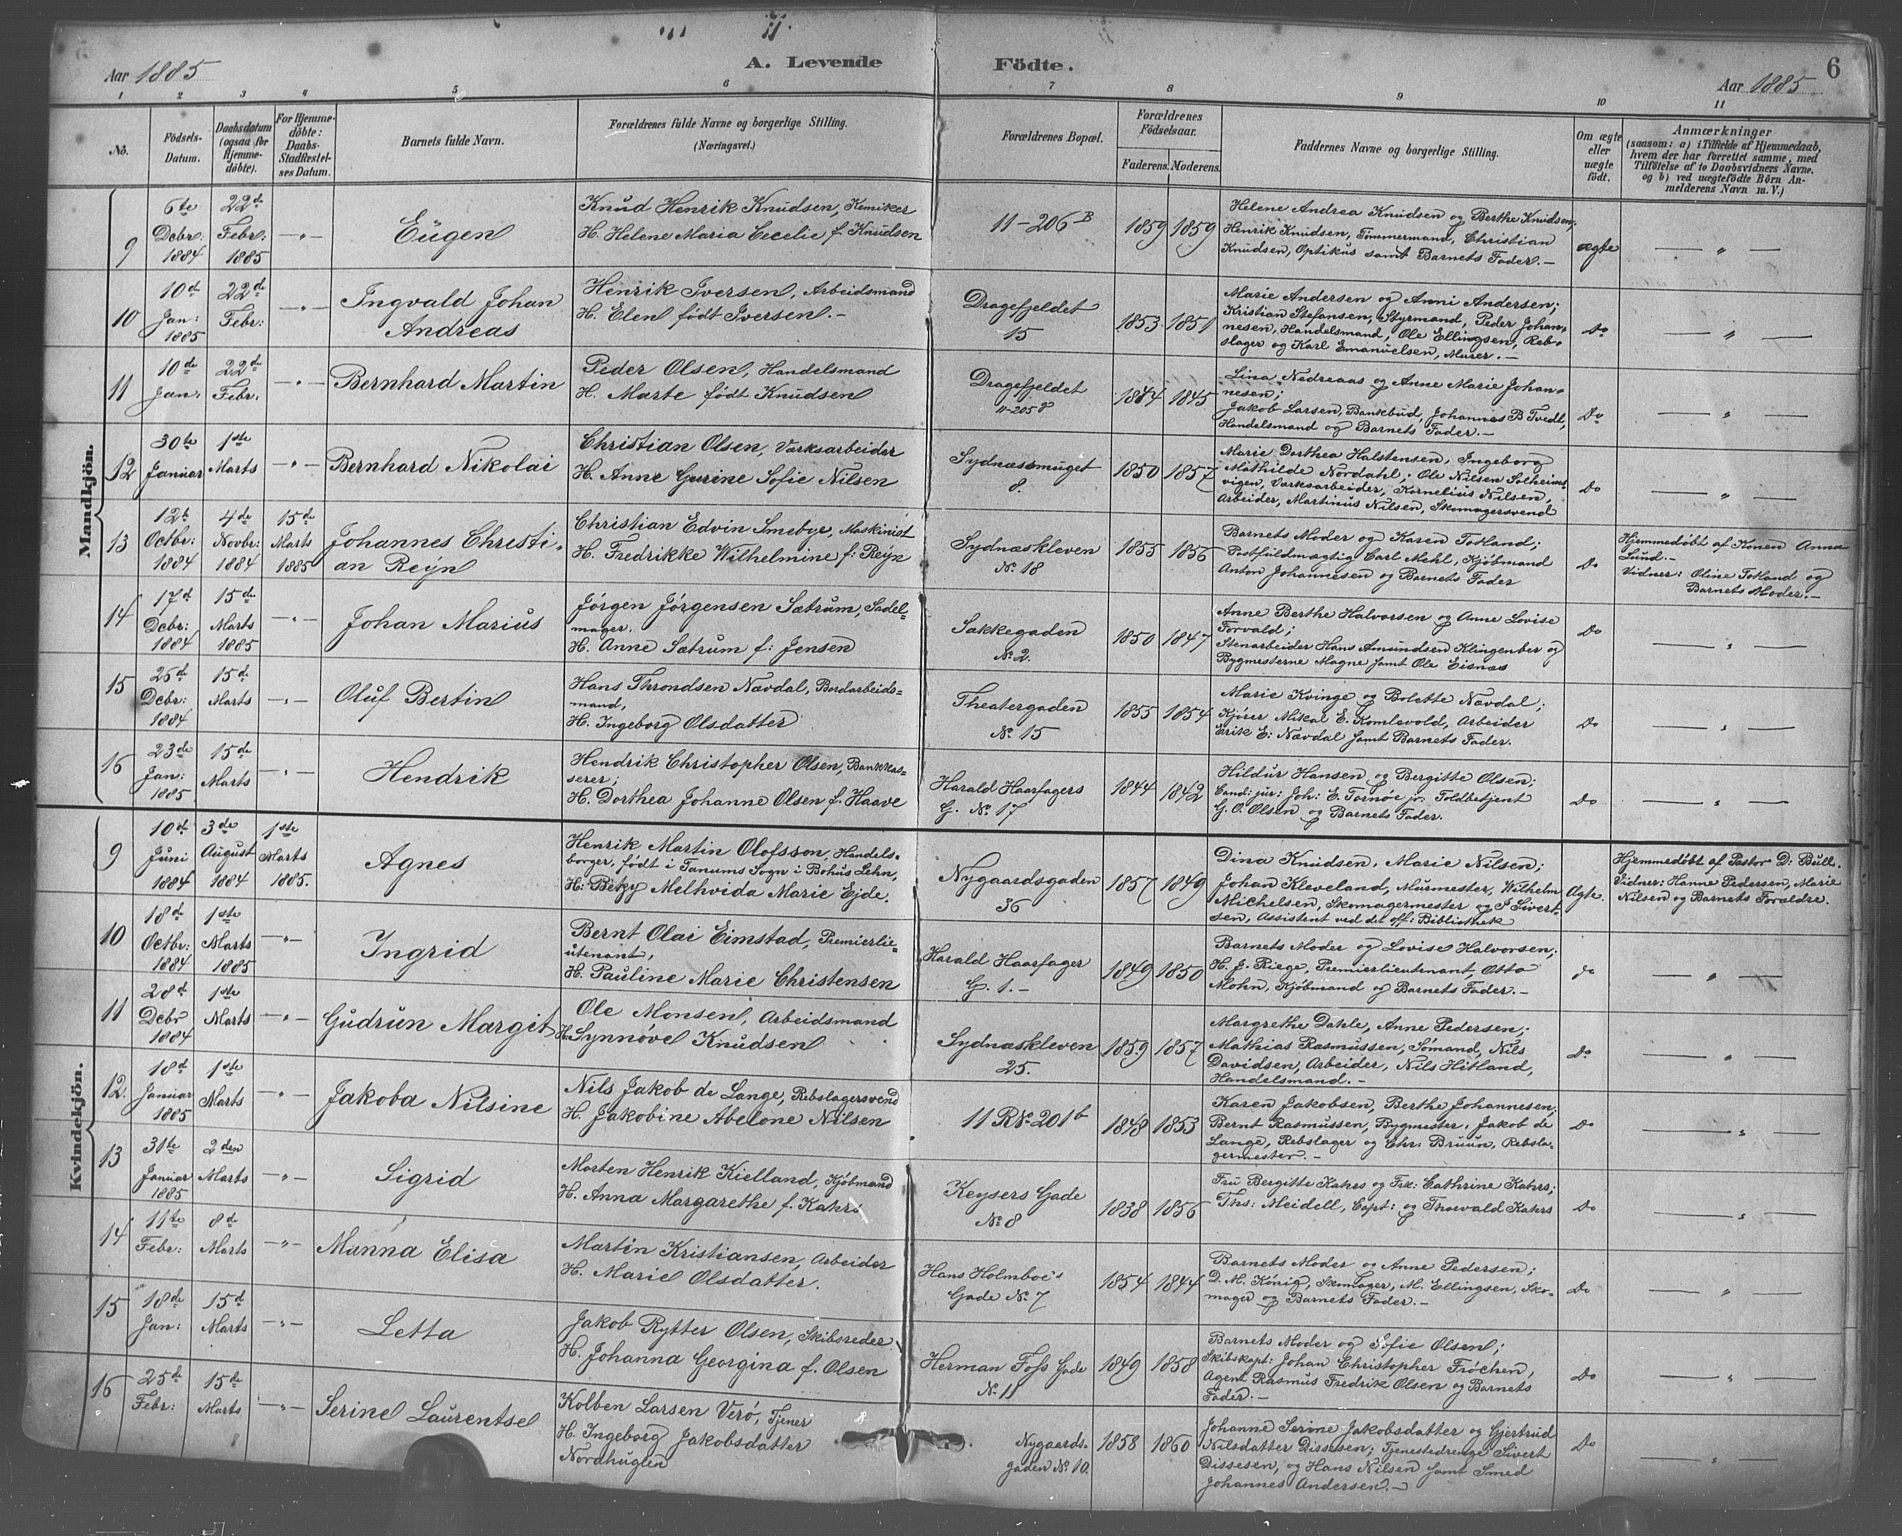 Aar 1885
A. Levende Födte.
Aar 1885
6
1 2 3 4 5 6 7 8 9 10 11
No.
Födsels-Datum.
Daabsdatum (ogsaa for Hjemmedöbte).
For Hjemmedöbte: Daabs-Stadfæstelses Datum.
Barnets fulde Navn.
Forældrenes fulde Navne og borgerlige Stilling. (Næringsvei.)
Forældrenes Bopæl.
Forældrenes Födselsaar.
Faderens. Moderens.
Faddernes Navne og borgerlige Stilling.
Om ægte eller uægte födt.
Anmærkninger
(saasom: a) i Tilfælde af Hjemmedaab,
hvem der har forrettet samme, med
Tilföielse af to Daabsvidners Navne.
og b) ved uægtefödte Börn Anmelderens Navn m. V.)
Mandkjön.
9
6te Debr. 1884
22de Febr: 1885
-"-
Eugen
Knud Henrik Knudsen, Kemiker
H. Helene Maria Cecelie f. Knudsen
11-206 B
1859 1859
Helene Andrea Knudsen og Berthe Knudsen,
Henrik Knudsen, Tømmermand, Christian
Knudsen, Optikus samt Barnets Fader.-
ægte
— " —
10
10d Jan: 1885
22de Febr:
-"-
Ingvald Johan
Andreas
Henrik Iversen, Arbeidsmand
H. Elen født Iversen.-
Dragefjeldet
15
1853 1851
Marie Andersen og Anni Andersen;
Kristian Stefansen, Styrmand, Peder Johan-
nesen, Handelsmand, Ole Ellingsen, Reb-
slager og Karl Emanuelsen, Murer.-
Do
— " —
11
10de Jan:
22de Febr.
-"-
Bernhard Martin
Peder Olsen, Handelsmand
H. Marte født Knudsen
Dragefjeldet
11-205
1844 1845
Lina Nedreaas og Anne Marie Johan-
nesen;
Jakob Larsen, Bankbud, Johannes B Tvedt,
Handelsmand og Barnets Fader.-
Do
— " —
12
30te Januar
1ste Marts
-"-
Bernhard Nikolai
Christian Olsen, Værksarbeider
H. Anne Gurine Sofie Nilsen
Sydnæssmuget
8.
1850 1857
Marie Dorthea Halstensen, Ingeborg
Mathilde Nordahl; Ole Nilsen Solheims-
vigen, Værksarbeider, Kornelius Nilsen,
Arbeider, Martinus Nilsen, Skomagersvend
Do
— " —
13
12te Octbr: 1884
4de Novbr: 1884
15de Marts 1885
Johannes Christi-
an Reyn
Christian Edvin Smebye, Maskinist
H. Fredrikke Wilhelmine f: Reyn
Sydnæskleven
No. 18
1855 1856
Barnets Moder og Karen Totland;
Postfuldmægtig Carl Mehl, Kjøbmand
Anton Johannesen og Barnets Fader
Do
Hjemmedøbt af Konen Anna
Lund.-
Vidner: Oline Totland og
Barnets Moder.-
14
17d Debr: 1884
15de Marts 1885
-"-
Johan Marius
Jørgen Jørgensen Sætrum, Sadel-
mager.
H. Anne Sætrum f: Jensen
Sakkegaden
No. 2.
1850 1847
Anne Berthe Halvorsen og Anne Lovise
Torvald;
Stenarbeider Hans Amundsen Klingenber og
Bygmesterne Magne samt Ole Eisnæs
Do
— " —
15
26de Debr: 1884
15de Marts
-"-
Oluf Bertin
Hans Throndsen Nævdal, Bordarbeids-
mand,
H. Ingeborg Olsdatter
Theatergaden
No. 15
1855 1854
Marie Kvinge og Bolette Nævdal;
Kjører Mikal E. Komlevold, Arbeider
Erik E. Nævdal samt Barnets Fader.
Do
— " —
16
23de Jan: 1885
15de Marts
-"-
Hendrik
Hendrik Christopher Olsen, Bankkas-
serer;
H. Dorthea Johanne Olsen f. Haave
Harald Haarfagers
G. No. 17
1844 1842
Hildur Hansen og Bergitte Olsen;
Cand: jur: Joh: E. Tornøe jr. Toldbetjent
G. O. Olsen og Barnets Fader.
Do
— " —
Kvindekjön.
9
10d Juni 1884
3de August 1884
1ste Marts 1885.
Agnes
Henrik Martin Olofsson, Handels-
borger, født i Tanums Sogn i Bohus Lehn,
H: Betzy Melhvida Marie Ejde.
Nygaardsgaden
36
1857 1849
Dina Knudsen, Marie Nilsen;
Johan Kleveland, Murmester, Wilhelm
Michelsen, Skomagermester og J. Sivert-
sen, Assistent ved det off: Bibliothek
Ægte.
Hjemmedøbt af Pastor D. Bull.
Vidner: Hanne Pedersen, Marie
Nilsen og Barnets Forældre.
10
18d Octbr: 1884
1ste Marts 1885
-"-
Ingrid
Bernt Olai Eimstad, Premierlie-
utenant,
H. Pauline Marie Christensen
Harald Haarfager
G. 1.-
1849 1850
Barnets Moder og Lovise Halvorsen;
H. J. Riege, Premierlieutenant, Otto
Mohn, Kjøbmand og Barnets Fader.-
do
" —
11
28d Debr 1884
1ste Marts
-"-
Gudrun Margit
Ole Monsen, Arbeidsmand
H. Synnøve Knudsen
Sydnæskleven
25.
1859 1857
Margrethe Dahle, Anne Pedersen;
Mathias Rasmussen, Sømand, Nils
Davidsen, Arbeider, Nils Hitland,
Handelsmand.-
Do
— " —
12.
18d Januar 1885
1ste Marts
-"-
Jakoba Nilsine
Nils Jakob de Lange, Rebslagersvend
H. Jakobine Abelone Nilsen
11 R No. 201b
1848 1853
Karen Jakobsen, Berthe Johannesen,
Bernt Rasmussen, Bygmester, Jakob de
Lange, Rebslager og Chr: Bruun, Rebsla-
germester.-
Do
— " —
13
31te Januar 1885
2den Marts
-"-
Sigrid
Morten Henrik Kielland, Kjøbmand
H. Anna Margarethe f. Kahrs
Keysers Gade
No. 8
1838 1856
Fru Bergitte Kahrs og Frk: Cathrine Kahrs;
Ths: Meidell, Capt: og Thorvald Kahrs
Do
— " —
14
11te Febr:
8de Marts
-"-
Manna Elisa
Martin Kristiansen, Arbeider
H. Marie Olsdatter.
Hans Holmboe's
Gade No. 7
1854 1844
Barnets Moder og Anne Pedersen;
D. M. König, Skomager, M. Ellingsen, Sko-
mager og Barnets Fader.-
Do
— " —
15
18de Jan:
15d Marts
-"-
Letta
Jakob Rytter Olsen, Skibsreder
H. Johanna Georgina f. Olsen
Herman Foss Gade
No. 11
1849 1858
Barnets Moder og Sofie Olsen;
Skibskapt: Johan Christopher Frøchen,
Agent Rasmus Fredrik Olsen og Barnets
Fader.-
Do
— " —
16
25de Febr:
15de Marts
-"-
Serine Laurentse
Kolben Larsen Verø, Tjener
H. Ingeborg Jakobsdatter
Nordhuglen
Nygaards-
gaden No. 10.
1858 1860
Johanne Serine Jakobsdatter og Gjertrud
Nilsdatter Dissesen; Tjenestedrenge Sivert
Dissesen, og Hans Nilsen samt Smed
Johannes Andersen.-
Do
— " —